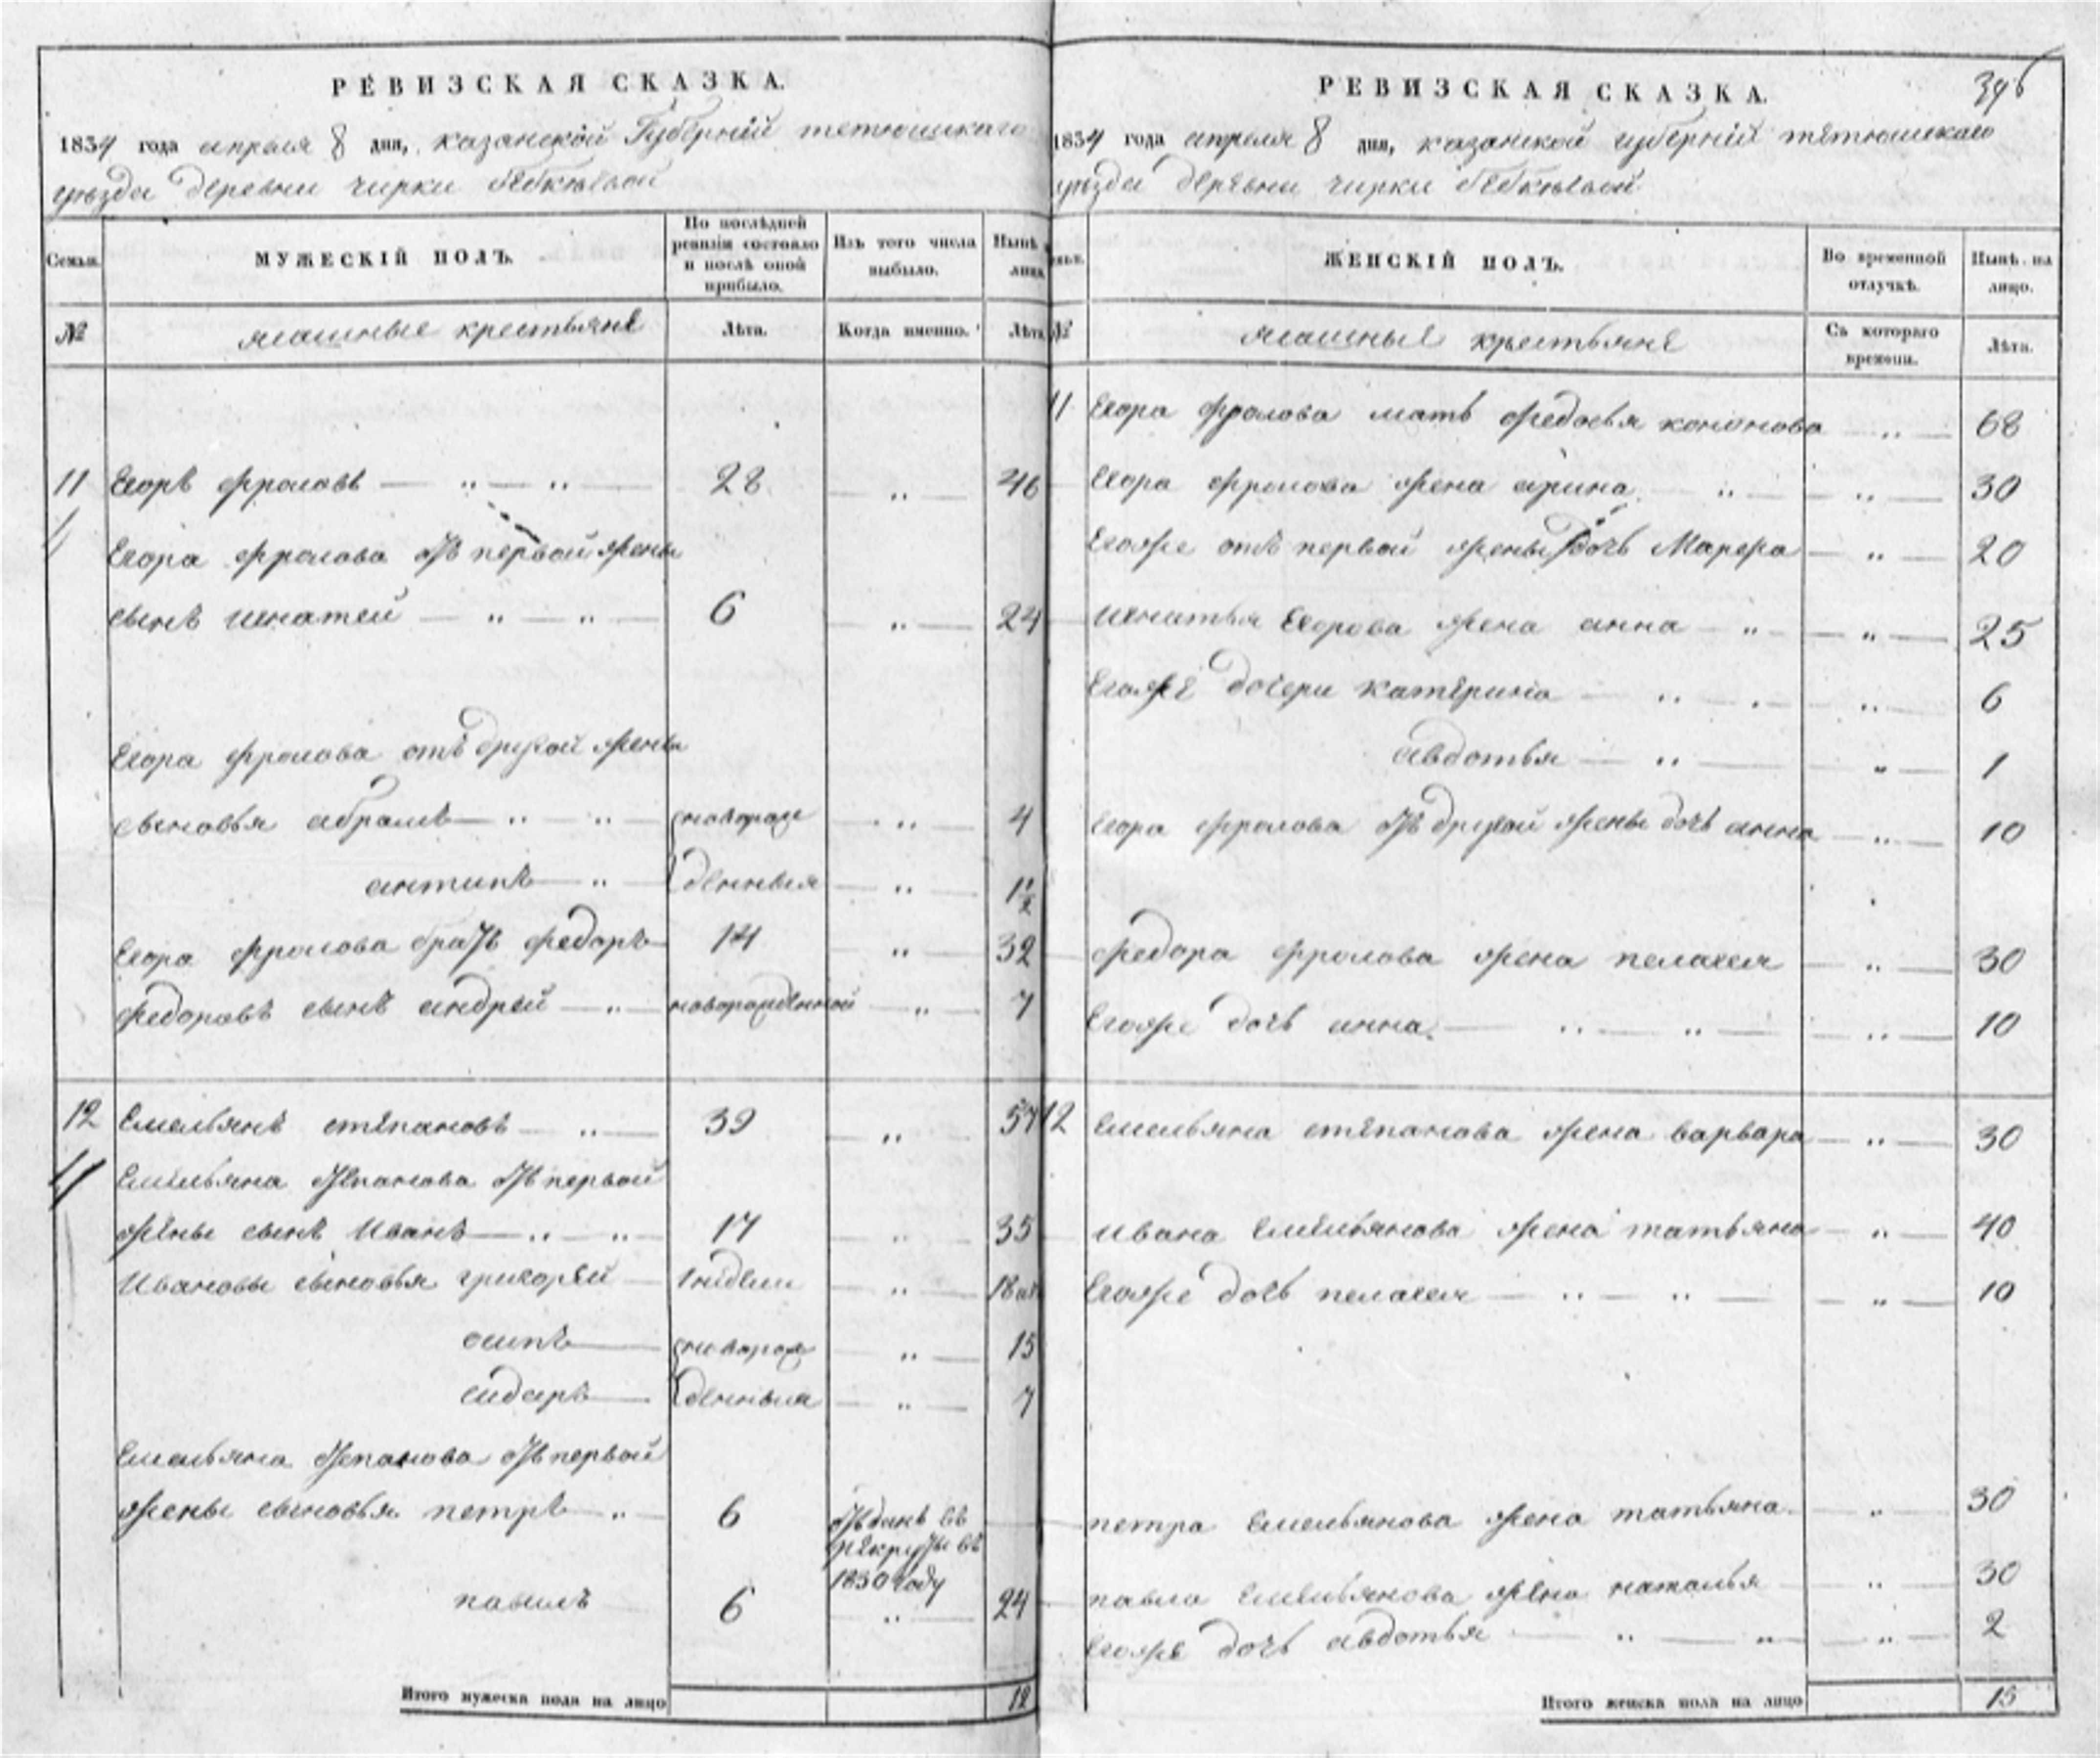 РЕВИЗСКАЯ СКАЗКА.
1834 года апреля 8 дня, казанской Губернiй тетюшскаго
уезда деревни чирки бебкѣевой
Семьи.
МУЖЕСКІЙ ПОЛЪ.
По послѣдней ревизіи состояло и послѣ оной прибыло.
Изъ того числа выбыло.
Нынѣ на лицо
№
ясашные крестьяне
Лѣта.
Когда именно.
Лѣта
11 Егоръ фроловъ — „ — „ — 28 — „ — 46
Егора фролова отъ первой жены
сынъ игнатей — „ — „ — 6 — „ — 24
Егора фролова отъ другой жены
сыновья абрамъ — „ — „ — новорож — „ — 4
антипъ — „ — денныя — „ — 1 1/2
Егора фролова братъ федоръ — 14 — „ — 32
федоровъ сынъ андрей — „ — новорожденной — „ — 7
12 Емельянъ степановъ — „ — 39 — „ — 57
Емельяна степанова отъ первой
жены сынъ Иванъ — „ — „ 17 — „ — 35
Ивановы сыновья григорей — 1 недели — „ — 18
осипъ — новорож — „ — 15
сидаръ — денныя — „ — 7
Емельяна степанова отъ первой
жены сыновья петръ — „ — 6 отъданъ въ
рекруты въ
1830 году
павилъ 6 — „ — 24
Итого мужеска пола на лицо 12
396
РЕВИЗСКАЯ СКАЗКА.
1834 года апреля 8 дня, казанской губернiй тетюшскаго
уезда деревни чирки бебкѣевой
ЖЕНСКІЙ ПОЛЪ.
Во временной отлучкѣ.
Нынѣ на лицо.
№
ясашныя крестьяне
Съ котораго времени.
Лѣта.
11 Егора фролова мать федосья кононова — „ — 68
Егора фролова жена арина — „ — „ — 30
Егояже отъ первой жены дочь Марфа — „ — 20
игнатья Егорова жена анна — „ — „ — 25
Егояже дочери катерина — „ — „ — 6
авдотья — „ — „ — 1
Егора фролова отъ другой жены дочь анна — „ — 10
федора фролова жена пелагея — „ — 30
Егояже дочь анна — „ — „ — „ — 10
12 Емельяна степанова жена варвара — „ — 30
ивана Емельянова жена татьяна — „ — 40
Егояже дочь пелагея — „ — „ — „ — 10
петра Емельянова жена татьяна — „ — 30
павла Емельянова жена наталья — „ — 30
Егояже дочь авдотья — „ — „ — „ — 2
Итого женска пола на лицо 15